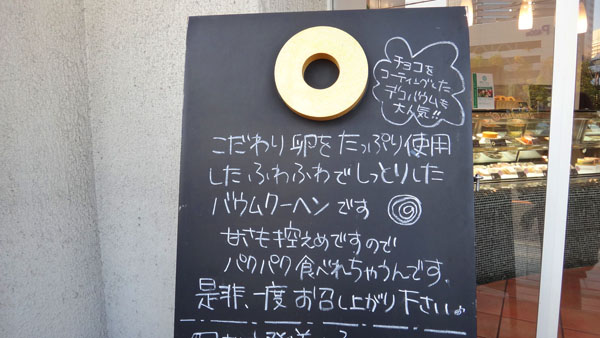 チョコを
コーティングした
デコバウムも
大人気!!
こだわり卵をたっぷり使用
したふわふわでしっとりした
バウムクーヘンです
甘さも控えめですので
パクパク食べれちゃうんです。
是非、一度お召し上がり下さい♪